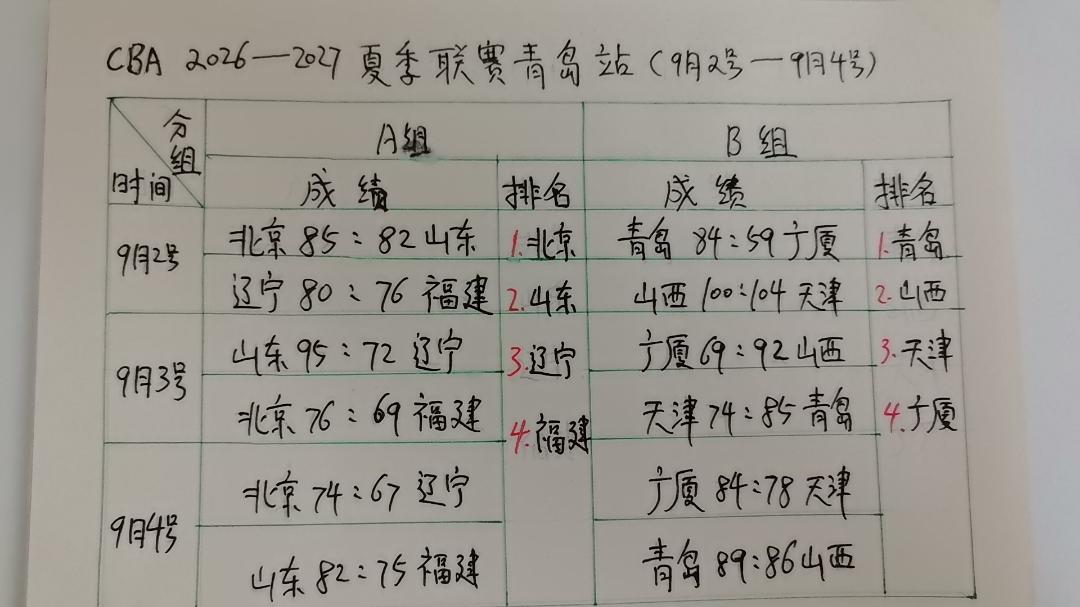 CBA 2026—2027夏季联赛青岛站(9月2号—9月4号)
分组 A组 B组
时间 成绩 排名 成绩 排名
9月2号 北京 85:82 山东 1.北京 青岛 84:59 广厦 1.青岛
辽宁 80:76 福建 2.山东 山西 100:104 天津 2.山西
9月3号 山东 95:72 辽宁 3.辽宁 广厦 69:92 山西 3.天津
北京 76:69 福建 4.福建 天津 74:85 青岛 4.广厦
9月4号 北京 74:67 辽宁 广厦 84:78 天津
山东 82:75 福建 青岛 89:86 山西